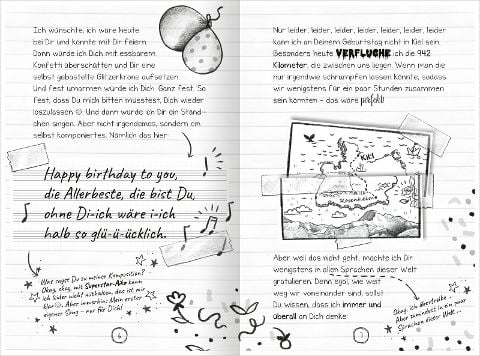 Ich wünschte, ich wäre heute
bei Dir und könnte mit Dir feiern.
Dann würde ich Dich mit essbarem
Konfetti überschütten und Dir eine
selbst gebastelte Glitzerkrone aufsetzen.
Und fest umarmen würde ich Dich. Ganz fest. So
fest, dass Du mich bitten müsstest, Dich wieder
loszulassen ☺. Und dann würde ich Dir ein Stand-
chen singen. Aber nicht irgendeines, sondern ein
selbst komponiertes. Nämlich das hier:
Happy birthday to you,
die Allerbeste, die bist Du,
ohne Di-ich wäre i-ich
halb so glü-ü-ücklich.
Was sagst Du zu meiner Komposition?
Okay, okay, mit Superstar-Ako kann
ich leider nicht mithalten, das ist mir
klar☺. Aber immerhin: Mein erster
eigener Song – nur für Dich!
6
Nur leider, leider, leider, leider, leider, leider, leider
kann ich an Deinem Geburtstag nicht in Kiel sein.
Besonders heute VERFLUCHE ich die 942
Kilometer, die zwischen uns liegen. Wenn man die
nur irgendwie schrumpfen lassen könnte, sodass
wir wenigstens für ein paar Stunden zusammen
sein könnten – das wäre perfekt!
KIEL
Rosenheim
Aber weil das nicht geht, möchte ich Dir
wenigstens in allen Sprachen dieser Welt
gratulieren. Denn egal, wie weit
weg wir voneinander sind, sollst
Du wissen, dass ich immer und
überall an Dich denke:
Okay, ich übertreibe –
Aber zumindest in ein paar
Sprachen dieser Welt ...
7